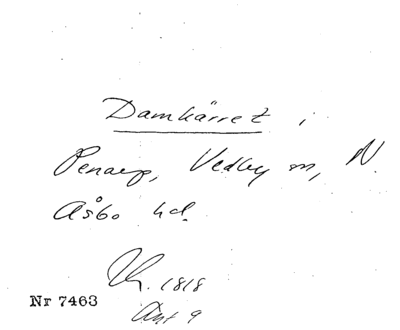 Damkärret i
Penarp, Vedby sn, N.
Åsbo hd.
Nr 7463
1818